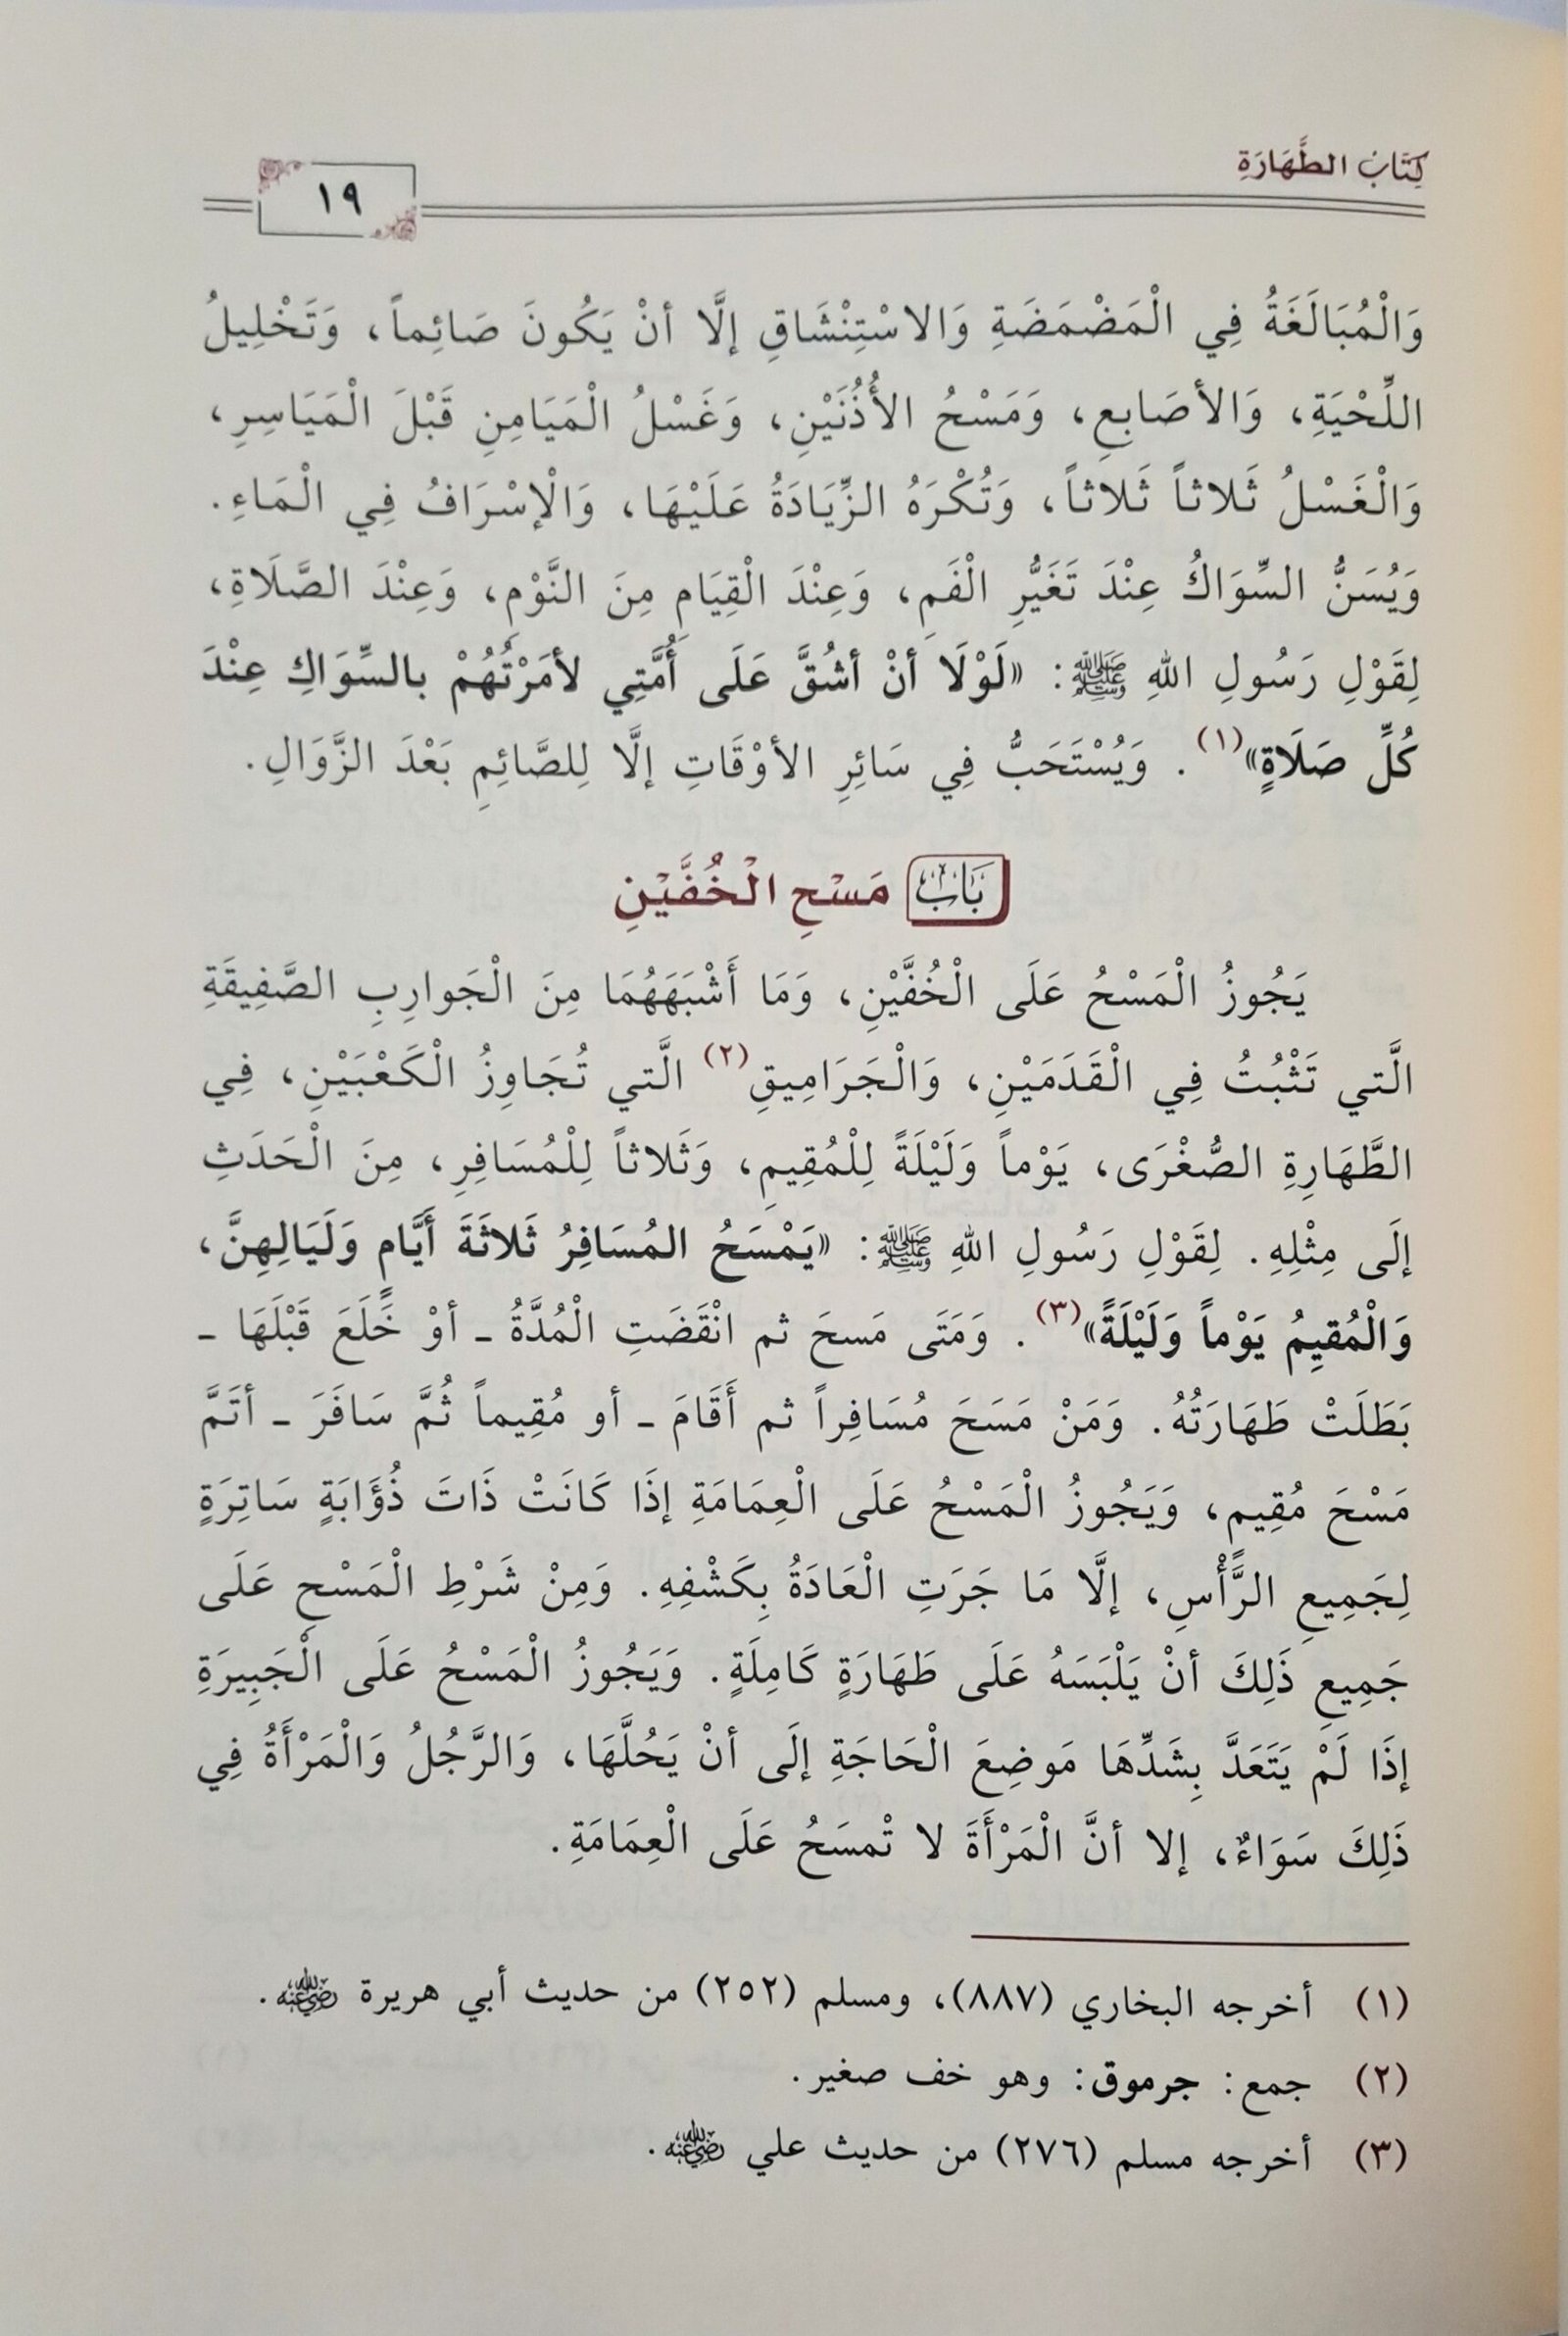 كِتَابُ الطَّهَارَةِ
١٩
وَالْمُبَالَغَةُ فِي الْمَضْمَضَةِ وَالاسْتِنْشَاقِ إلَّا أنْ يَكُونَ صَائِماً، وَتَخْلِيلُ
اللِّحْيَةِ، وَالأصَابِعِ، وَمَسْحُ الأُذُنَيْنِ، وَغَسْلُ الْمَيَامِنِ قَبْلَ الْمَيَاسِرِ،
وَالْغَسْلُ ثَلاثاً ثَلاثاً، وَتُكْرَهُ الزِّيَادَةُ عَلَيْهَا، وَالْإسْرَافُ فِي الْمَاءِ.
وَيُسَنُّ السِّوَاكُ عِنْدَ تَغَيُّرِ الْفَمِ، وَعِنْدَ الْقِيَامِ مِنَ النَّوْمِ، وَعِنْدَ الصَّلَاةِ،
لِقَوْلِ رَسُولِ اللهِ ﷺ: «لَوْلَا أنْ أشُقَّ عَلَى أُمَّتِي لأمَرْتُهُمْ بالسِّوَاكِ عِنْدَ
كُلِّ صَلَاةٍ»(١). وَيُسْتَحَبُّ فِي سَائِرِ الأوْقَاتِ إلَّا لِلصَّائِمِ بَعْدَ الزَّوَالِ.
بَابُ مَسْحِ الْخُفَّيْنِ
يَجُوزُ الْمَسْحُ عَلَى الْخُفَّيْنِ، وَمَا أَشْبَهَهُمَا مِنَ الْجَوارِبِ الصَّفِيقَةِ
الَّتي تَثْبُتُ فِي الْقَدَمَيْنِ، وَالْجَرَامِيقِ(٢) الَّتي تُجَاوِزُ الْكَعْبَيْنِ، فِي
الطَّهَارِةِ الصُّغْرَى، يَوْماً وَلَيْلَةً لِلْمُقِيمِ، وَثَلاثاً لِلْمُسَافِرِ، مِنَ الْحَدَثِ
إلَى مِثْلِهِ. لِقَوْلِ رَسُولِ اللهِ ﷺ: «يَمْسَحُ المُسَافِرُ ثَلاثَةَ أَيَّامٍ وَلَيَالِهِنَّ،
وَالْمُقيِمُ يَوْماً وَلَيْلَةً»(٣). وَمَتَى مَسحَ ثم انْقَضَتِ الْمُدَّةُ ـ أوْ خَلَعَ قَبْلَهَا ـ
بَطَلَتْ طَهَارَتُهُ. وَمَنْ مَسَحَ مُسَافِراً ثم أَقَامَ ـ أو مُقِيماً ثُمَّ سَافَرَ ـ أتَمَّ
مَسْحَ مُقِيمٍ، وَيَجُوزُ الْمَسْحُ عَلَى الْعِمَامَةِ إذَا كَانَتْ ذَاتَ ذُؤَابَةٍ سَاتِرَةٍ
لِجَمِيعِ الرَّأْسِ، إلَّا مَا جَرَتِ الْعَادَةُ بِكَشْفِهِ. وَمِنْ شَرْطِ الْمَسْحِ عَلَى
جَمِيعِ ذَلِكَ أنْ يَلْبَسَهُ عَلَى طَهَارَةٍ كَامِلَةٍ. وَيَجُوزُ الْمَسْحُ عَلَى الْجَبِيرَةِ
إذَا لَمْ يَتَعَدَّ بِشَدِّهَا مَوضِعَ الْحَاجَةِ إلَى أنْ يَحُلَّهَا، وَالرَّجُلُ وَالْمَرْأَةُ فِي
ذَلِكَ سَوَاءٌ، إلا أنَّ الْمَرْأَةَ لا تْمسَحُ عَلَى الْعِمَامَةِ.
(١) أخرجه البخاري (٨٨٧)، ومسلم (٢٥٢) من حديث أبي هريرة رضي الله عنه.
(٢) جمع: جرموق: وهو خف صغير.
(٣) أخرجه مسلم (٢٧٦) من حديث علي رضي الله عنه.